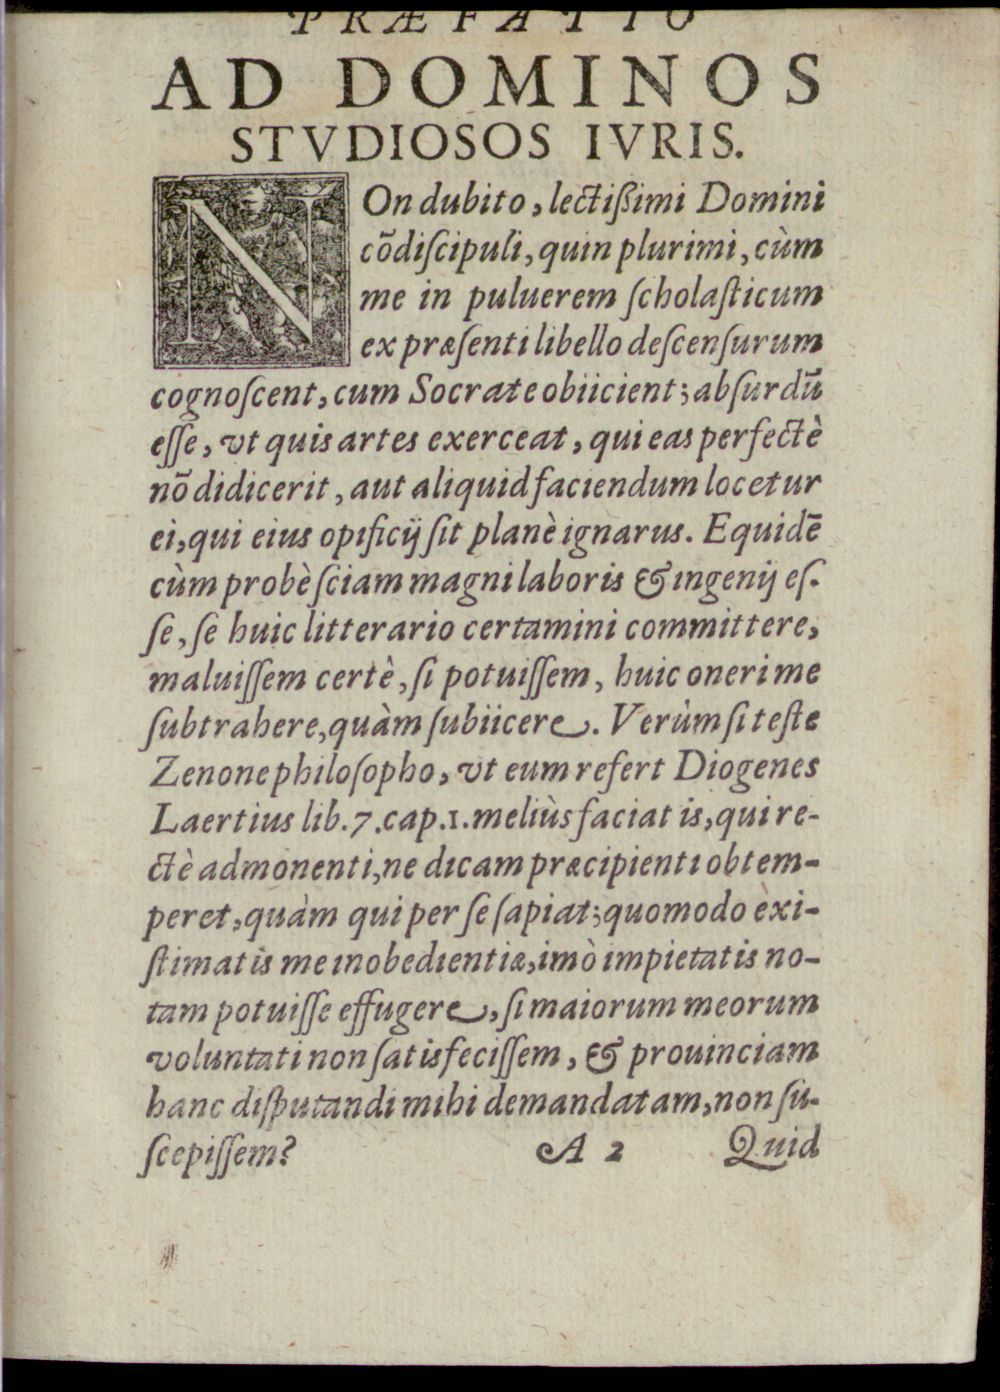 PRÆFATIO
AD DOMINOS
STVDIOSOS IVRIS.
NOn dubito, lectißimi Domini
cõdiſcipuli, quin plurimi, cùm
me in puluerem ſcholaſticum
ex præſenti libello deſcenſurum
cognoſcent, cum Socrate obiicient; abſurdũ
eſſe, vt quis artes exerceat, qui eas perfectè
nõ didicerit, aut aliquid faciendum locetur
ei, qui eius opificij ſit planè ignarus. Equidẽ
cùm probè ſciam magni laboris & ingenij eſ-
ſe, ſe huic litterario certamini committere,
maluiſſem certè, ſi potuiſſem, huic oneri me
ſubtrahere, quàm ſubiicere. Verùm ſi teſte
Zenone philoſopho, vt eum refert Diogenes
Laertius lib. 7. cap. 1. meliùs faciat is, qui re-
ctè admonenti, ne dicam præcipienti obtem-
peret, quàm qui per ſe ſapiat; quomodo èxi-
ſtimatis me inobedientiæ, imò impietatis no-
tam potuiſſe effugere, ſi maiorum meorum
voluntati non ſatisfeciſſem, & prouinciam
hanc diſputandi mihi demandatam, non ſu-
ſcepiſſem? A 2 Quid